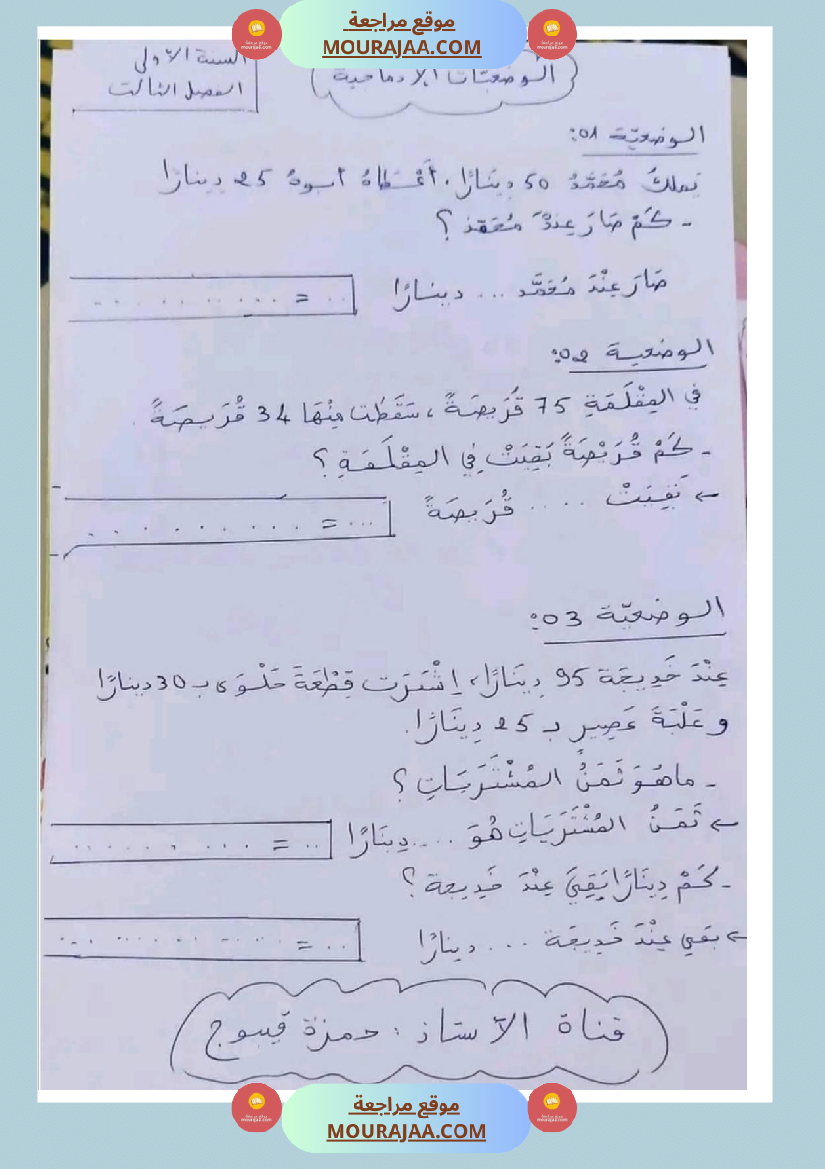 موقع مراجعة
MOURAJAA.COM
السنة الأولى
الفصل الثالث
الوضعيات الإدماجية
الوضعيّة 01:
يَملكُ مُحَمَّدٌ 50 دِينَارًا، أَعْطَاهُ أبوهُ 25 دينارًا
- كَمْ صَارَ عِندَ مُحَمَّد ؟
صَارَ عِنْدَ مُحَمَّد ... دينارًا
... = ...........
الوضعية 02:
في المِقْلَمَةِ 75 قُرَيصَةً ، سَقَطَت مِنْهَا 34 قُرَيصَةً
- كَمْ قُرَيْصَةً بَقِيَتْ فِي المِقْلَمَةِ ؟
← بَقِيَتْ .... قُرَيصَةً
... = ..........
الوضعيّة 03:
عِنْدَ خَدِيجَة 95 دِينَارًا، اِشْتَرَت قِطْعَةَ حَلْوَى بـ 30 دينارًا
و عُلْبَةَ عَصِيرٍ بـ 25 دِينَارًا.
- ماهُوَ ثَمَنُ المُشْتَرَيَاتِ ؟
← ثَمَنُ المُشْتَرَيَاتِ هُوَ .... دِينَارًا
.. = ........
- كَمْ دِينَارًا بَقِيَ عِنْدَ خَدِيجة ؟
← بقي عِنْدَ خَدِيجَة ... دينارًا
.. = ...........
قناة الأستاذ : حمزة
موقع مراجعة
MOURAJAA.COM